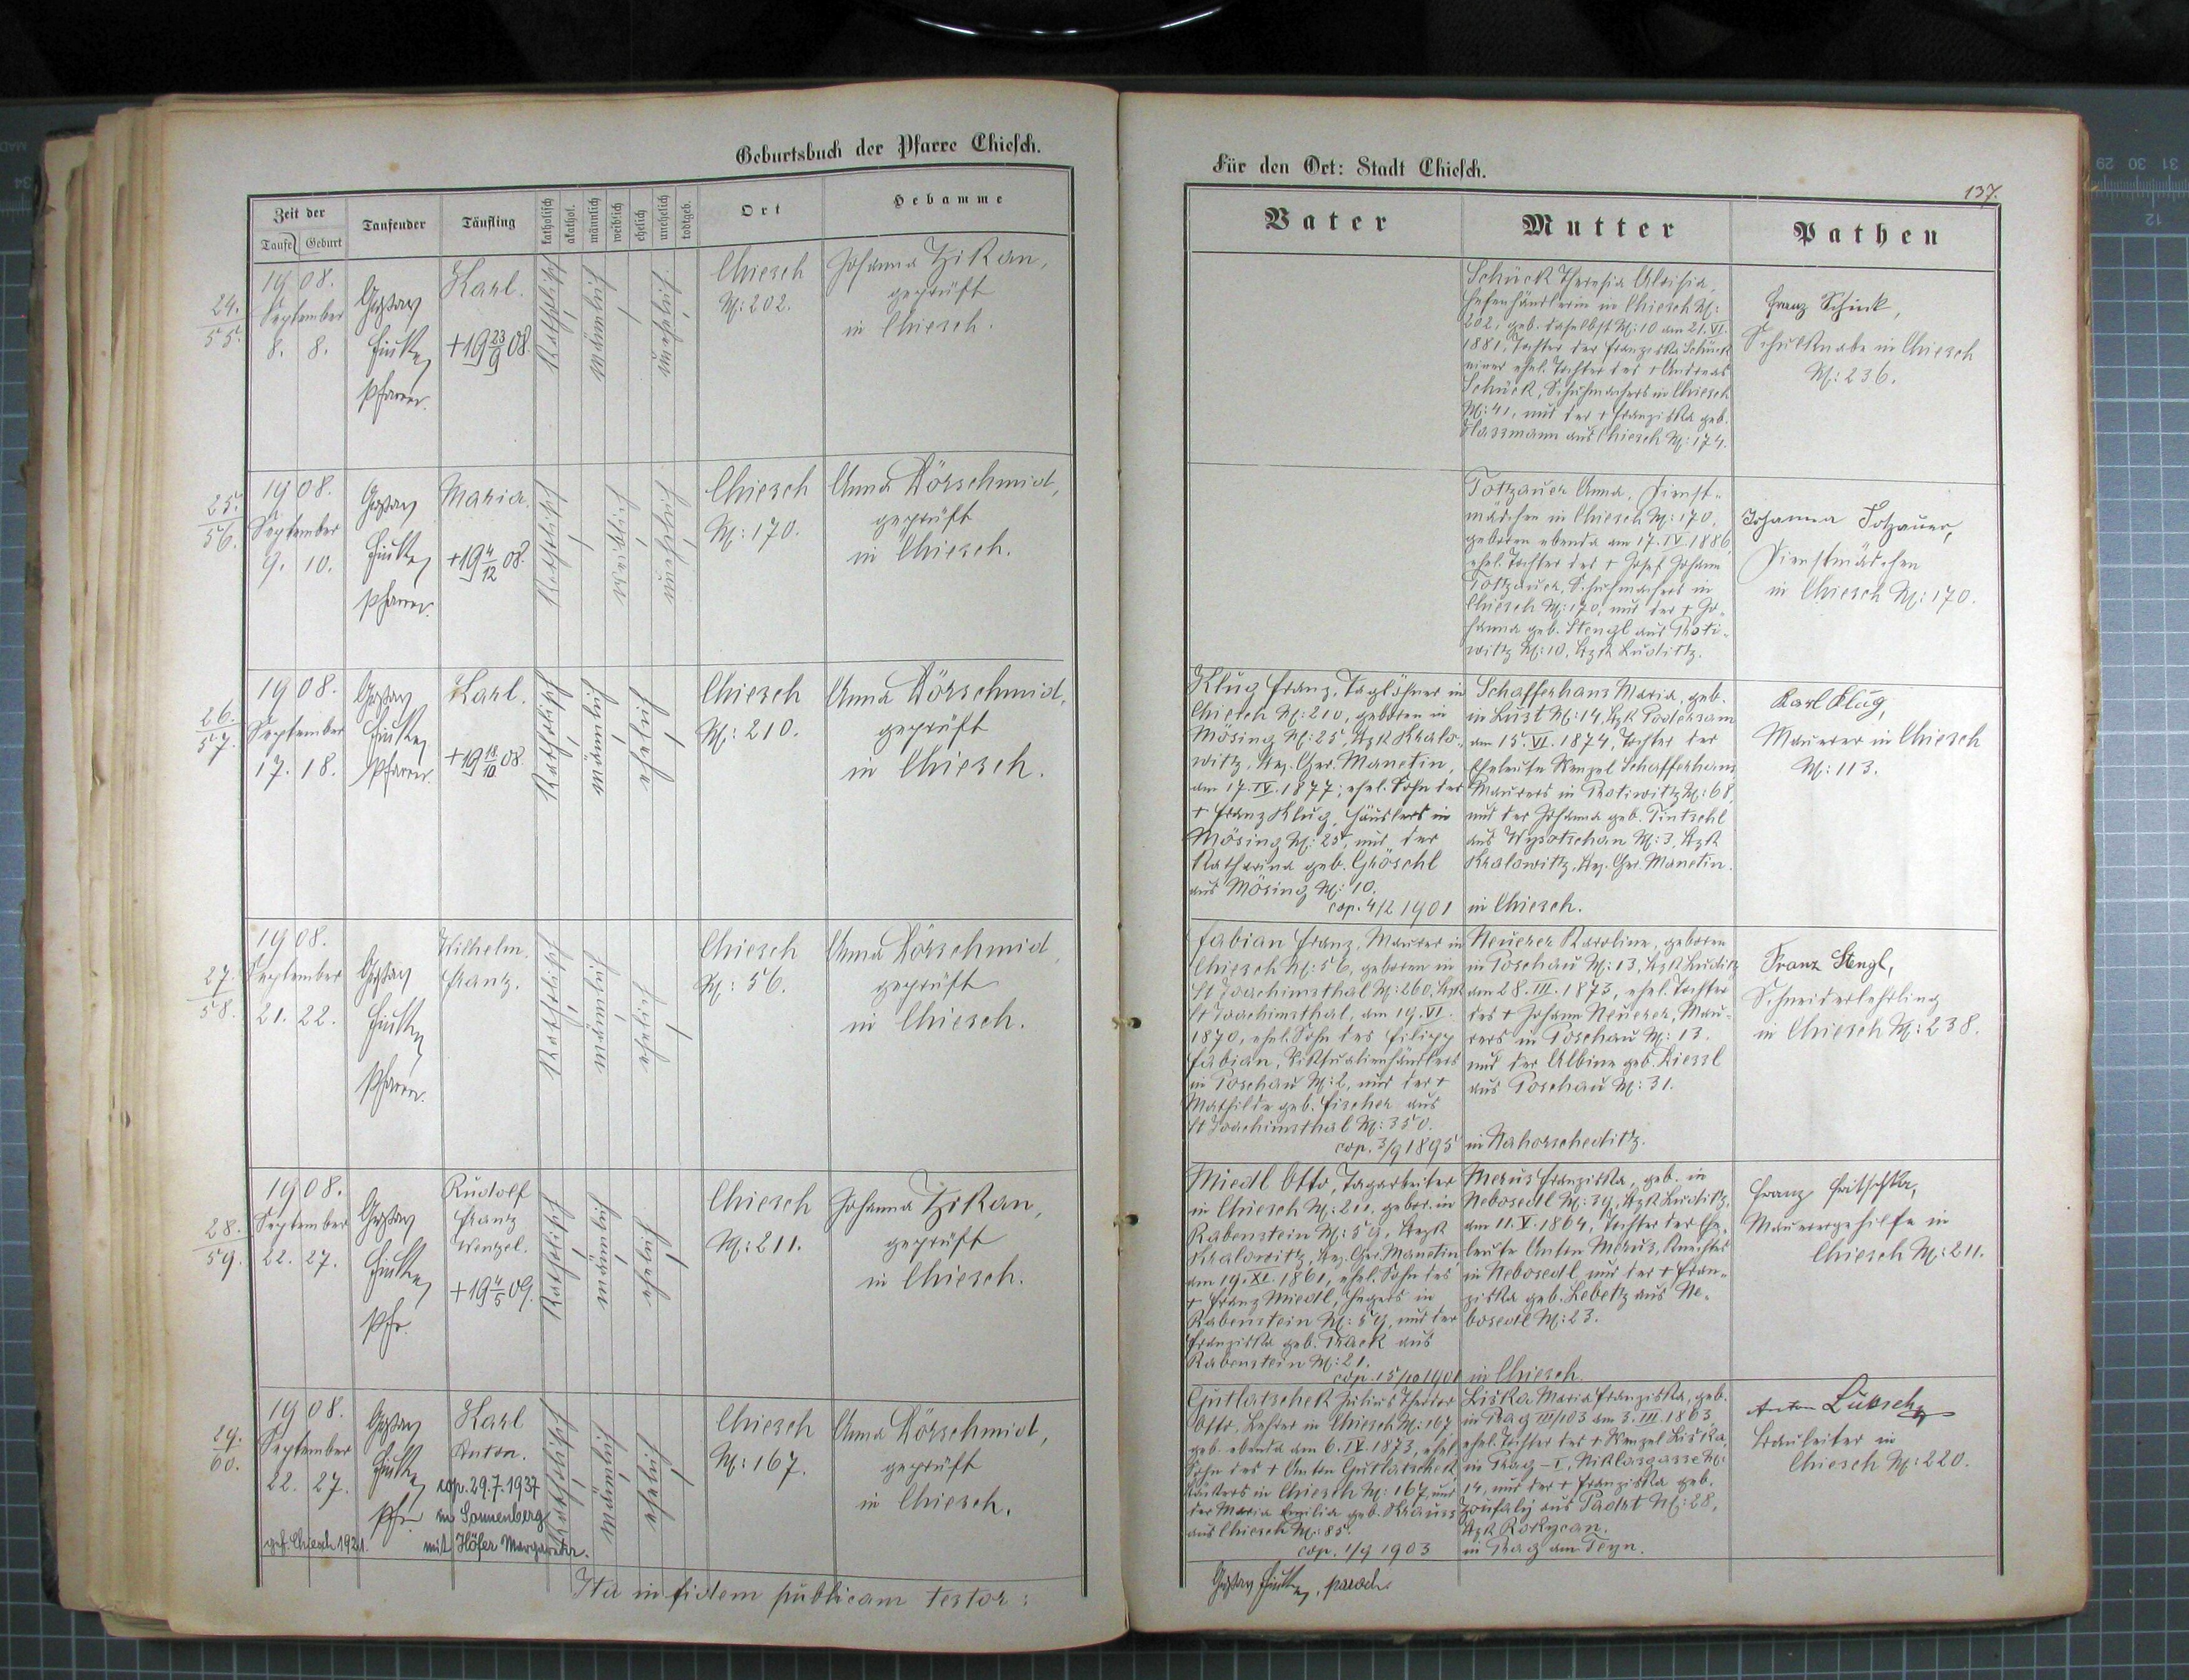 Geburtsbuch der Pfarre Chiesch.
Zeit der
Taufe Geburt
Taufender
Täufling
katholisch
akathol.
männlich
weiblich
ehelich
unehelich
todtgeb.
Ort
Hebamme
24.
55.
1908.
September
8. 8.
Gustav
Pfarrer.
Karl.
+19 23/9 08.
katholisch
männlich
unehelich
Chiesch
N: 202.
Johanna Tzikan,
geprüft
in Chiesch.
25.
56.
1908.
September
9. 10.
Gustav
Pfarrer.
Maria.
+19 4/12 08.
katholisch
weiblich
unehelich
Chiesch
N: 170.
Anna Dörschmid,
geprüft
in Chiesch.
26.
57.
1908.
September
17. 18.
Gustav
Pfarrer.
Karl.
+19 18/10 08.
katholisch
männlich
ehelich
Chiesch
N: 210.
Anna Dörschmid,
geprüft
in Chiesch.
27.
58.
1908.
September
21. 22.
Gustav
Pfarrer.
Wilhelm
Franz.
katholisch
männlich
ehelich
Chiesch
N: 56.
Anna Dörschmid,
geprüft
in Chiesch.
28.
59.
1908.
September
22. 27.
Gustav
Pfr.
Rudolf
Franz
Wenzel.
+19 4/5 09.
katholisch
männlich
ehelich
Chiesch
N: 211.
Johanna Tzikan,
geprüft
in Chiesch.
29.
60.
1908.
September
22. 27.
gef. Chiesch 1921.
Gustav
Pfr.
Karl
Anton.
cop. 29.7.1937
in Sonnenberg
mit Höfer Margareta.
katholisch
männlich
ehelich
Chiesch
N: 167.
Anna Dörschmid,
geprüft
in Chiesch.
Ita in fidem publicam testor:
Für den Ort: Stadt Chiesch.
137.
Vater
Mutter
Pathen
Schück Theresia Aloisia,
Hefenhändlerin in Chiesch N:
202, geb. daselbst N: 10 am 21. VI.
1881, Tochter der Franziska Schück
einer ehel. Tochter des + Andreas
Schück, Schuhmachers in Chiesch
N: 41, und der + Franziska geb.
aus Chiesch N: 174.
Franz Schück,
Schulknabe in Chiesch
N: 236.
Totzauer Anna, Dienst-
mädchen in Chiesch N: 170,
geboren ebenda am 17. IV. 1886,
ehel. Tochter des + Josef Johann
Totzauer, Schuhmachers in
Chiesch N: 170, und der + Jo-
hanna geb. Stengl aus Proti-
witz N: 10, Bzk Luditz.
Johanna Totzauer,
Dienstmädchen
in Chiesch N: 170.
Klug Franz, Taglöhner in
Chiesch N: 210, geboren in
Mösing N: 25, Bzk Kralo-
witz, Bez. Ger. Manetin,
am 17. IV. 1877; ehel. Sohn des
+ Franz Klug, Häuslers in
Mösing N: 25, und der
Katharina geb. Gröschl
aus Mösing N: 10.
cop. 4/2 1901
Schafferhans Maria, geb.
in Lust N: 14, Bzk Podersam
am 15. VI. 1874, Tochter der
Eheleute Wenzel Schafferhans
Maurers in Protiwitz N: 68,
und der Johanna geb. Tintschl
aus Wysotschan N: 3, Bzk
Kralowitz, Bez. Ger. Manetin.
in Chiesch.
Karl Klug,
Maurer in Chiesch
N: 113.
Fabian Franz, Maurer in
Chiesch N: 56, geboren in
St Joachimsthal N: 260, Bzk
St Joachimsthal, am 19. VI.
1870, ehel. Sohn des Filipp
Fabian, Viktualienhändlers
in Poschau N: 2, und der +
Mathilde geb. Fischer aus
St Joachimsthal N: 350.
cop. 3/9 1895
Neuerer Karoline, geboren
in Poschau N: 13, Bzk Luditz
am 28. III. 1873, ehel. Tochter
des + Johann Neuerer, Mau-
rers in Poschau N: 13.
und der Albine geb. Kiessl
aus Poschau N: 31.
in Nahorscheditz.
Franz Stengl,
Schneiderlehrling
in Chiesch N: 238.
Miedl Otto, Tagarbeiter
in Chiesch N: 211, gebor. in
Rabenstein N: 59, Bezk
Kralowitz, Bez. Ger. Manetin
am 19. XI. 1861, ehel. Sohn des
+ Franz Miedl, Hegers in
Rabenstein N: 59, und der
Franziska geb. Track aus
Rabenstein N: 21.
cop. 15/10 1901
Merus Franziska, geb. in
Nebosedl N: 39, Bzk Luditz,
am 11. V. 1864, Tochter der Ehe-
leute Anton Merus, Knechtes
in Nebosedl und der + Fran-
ziska geb. Lebetz aus Ne-
bosedl N: 23.
in Chiesch.
Franz Fritschka,
Maurergehilfe in
Chiesch N: 211.
Gutlatschek Julius Theodor
Otto, Lehrer in Chiesch N: 167
geb. ebenda am 6. IV. 1873, ehel.
Sohn des + Anton Gutlatschek
in Chiesch N: 167 und
der Maria Emilia geb. Krauss
aus Chiesch N: 85.
cop. 1/9 1903
Liska Maria Franziska, geb.
in Prag III/103 am 3. III. 1863,
ehel. Tochter des + Wenzel Liska,
in Prag - I, Niklasgasse N:
14, und der + Franziska geb.
Zoufaly aus Padrt N: 28,
Bzk Rokycan.
in Prag am Teyn.
Anton Lutsch
Bauleiter in
Chiesch N: 220.
Gustav, paroch.